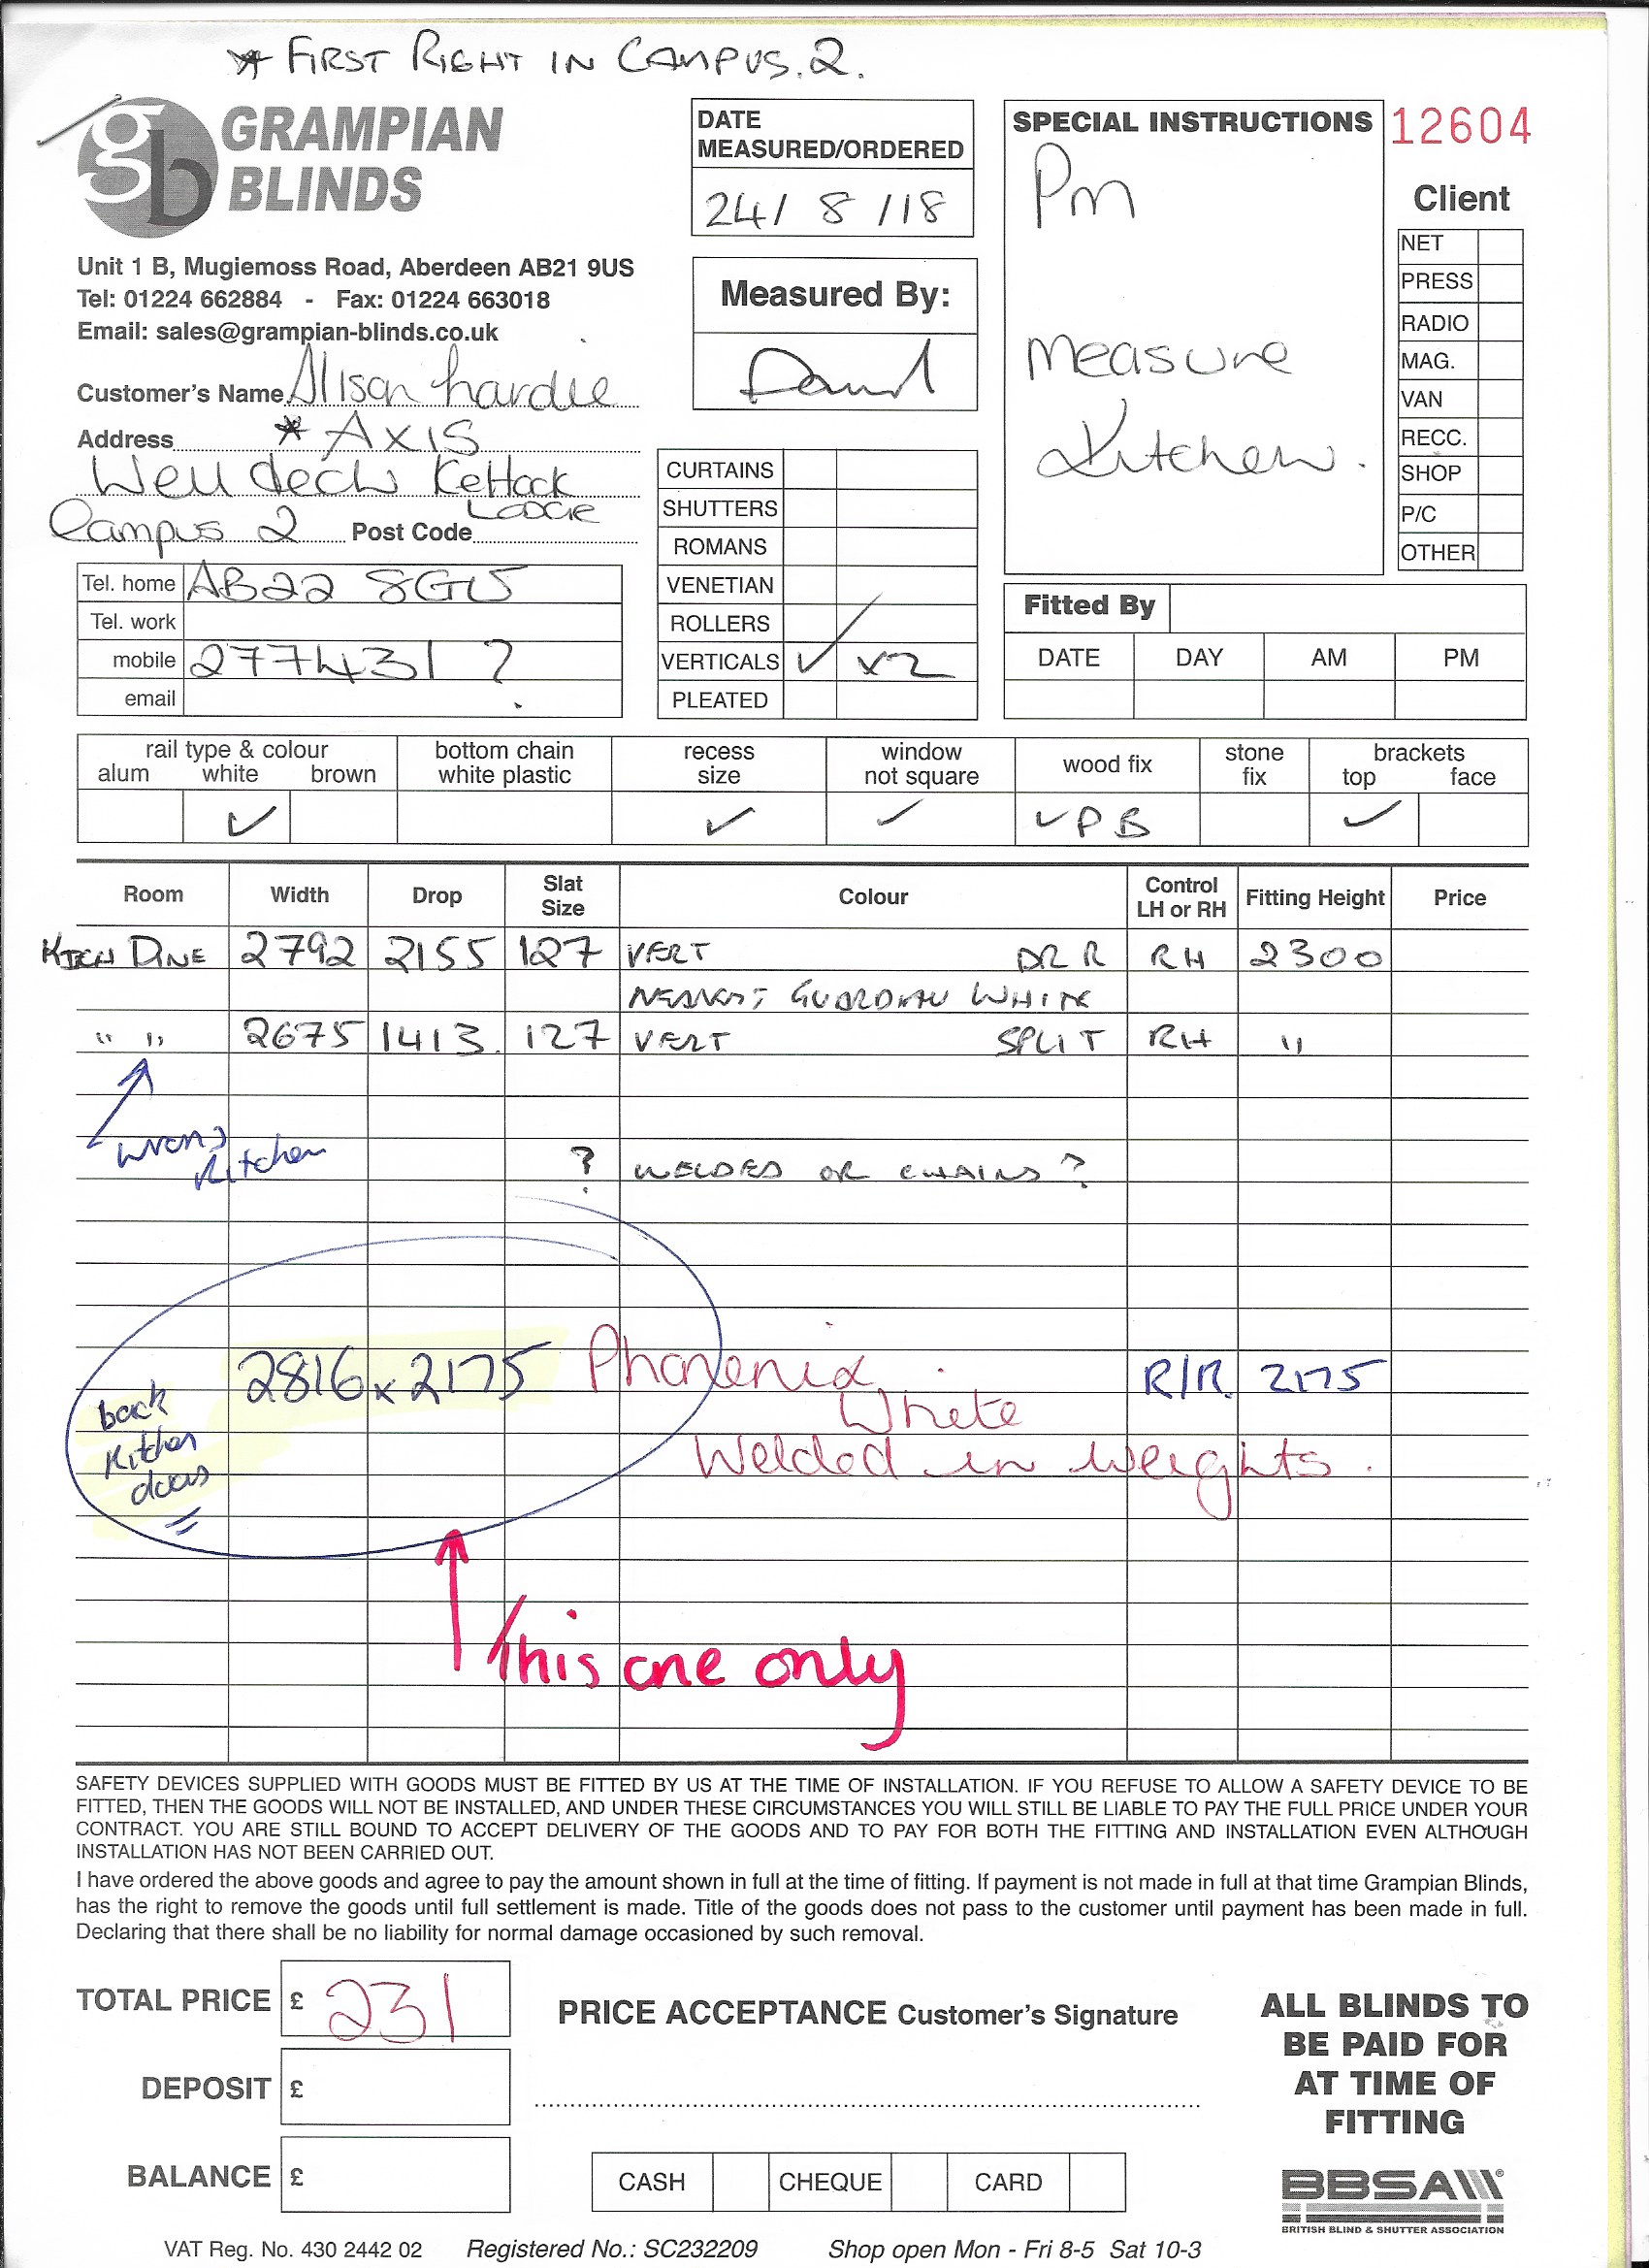 * FIRST RIGHT IN CAMPUS. 2.
gb GRAMPIAN BLINDS
Unit 1 B, Mugiemoss Road, Aberdeen AB21 9US
Tel: 01224 662884 - Fax: 01224 663018
Email: sales@grampian-blinds.co.uk
Customer's Name Alison hardie
Address * AXIS
Well tech Kettock
LODGE
Campus 2 Post Code
Tel. home AB22 8GU
Tel. work
mobile 277431 ?
email
DATE
MEASURED/ORDERED
24/ 8 /18
Measured By:
David
CURTAINS
SHUTTERS
ROMANS
VENETIAN
ROLLERS
VERTICALS ✓ x2
PLEATED
SPECIAL INSTRUCTIONS
Pm
measure
Kitchen.
12604
Client
NET
PRESS
RADIO
MAG.
VAN
RECC.
SHOP
P/C
OTHER
Fitted By
DATE DAY AM PM
rail type & colour
alum white brown
bottom chain
white plastic
recess
size
window
not square
wood fix
stone
fix
brackets
top face
✓ ✓ ✓ ✓ PB ✓
Room Width Drop Slat Size Colour Control LH or RH Fitting Height Price
KITCH DINE 2792 2155 127 VERT RH 2300
GUARDIAN WHITE
" " 2675 1413. 127 VERT SPLIT RH "
wrong
Kitchen
? WELDED OR CHAINS ?
2816 x 2175 Phoenix R/R. 2175
White
Welded in weights.
back
Kitchen
doors
This one only
SAFETY DEVICES SUPPLIED WITH GOODS MUST BE FITTED BY US AT THE TIME OF INSTALLATION. IF YOU REFUSE TO ALLOW A SAFETY DEVICE TO BE
FITTED, THEN THE GOODS WILL NOT BE INSTALLED, AND UNDER THESE CIRCUMSTANCES YOU WILL STILL BE LIABLE TO PAY THE FULL PRICE UNDER YOUR
CONTRACT. YOU ARE STILL BOUND TO ACCEPT DELIVERY OF THE GOODS AND TO PAY FOR BOTH THE FITTING AND INSTALLATION EVEN ALTHOUGH
INSTALLATION HAS NOT BEEN CARRIED OUT.
I have ordered the above goods and agree to pay the amount shown in full at the time of fitting. If payment is not made in full at that time Grampian Blinds,
has the right to remove the goods until full settlement is made. Title of the goods does not pass to the customer until payment has been made in full.
Declaring that there shall be no liability for normal damage occasioned by such removal.
TOTAL PRICE £ 231
DEPOSIT £
BALANCE £
PRICE ACCEPTANCE Customer's Signature
CASH CHEQUE CARD
ALL BLINDS TO
BE PAID FOR
AT TIME OF
FITTING
BBSA
BRITISH BLIND & SHUTTER ASSOCIATION
VAT Reg. No. 430 2442 02 Registered No.: SC232209 Shop open Mon - Fri 8-5 Sat 10-3